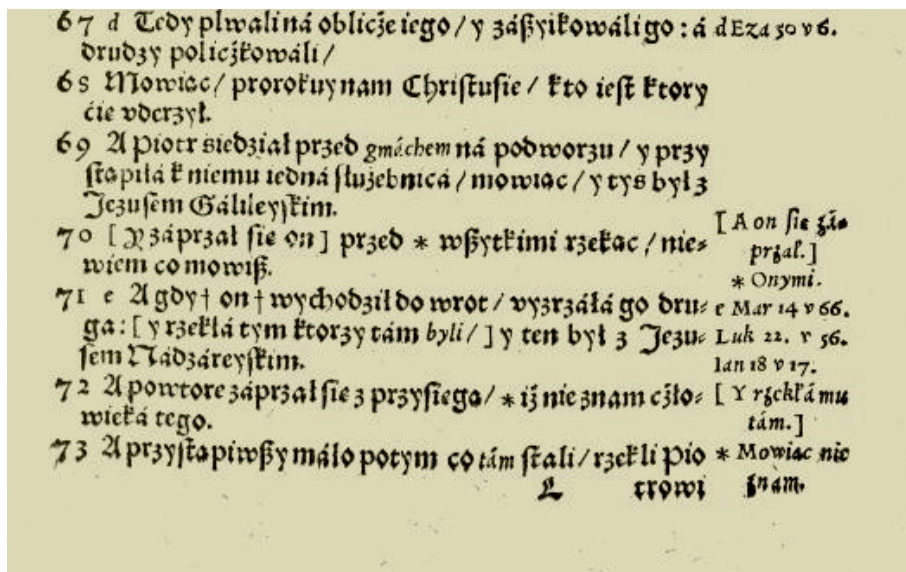 67 d Tedy plwali ná oblicże iego / y záßyikowáli go : á
drudzy policżkowáli /
68 Mowiac / prorokuy nam Christusie / kto iest ktory
ćie vderzył.
69 A Piotr siedział przed gmáchem ná podworzu / y przy
stapiłá k niemu iedná służebnicá / mowiac / y tyś był z
Jezusem Gálileyskim.
70 [ Y záprzał sie on ] przed * wßytkimi rzekac / nie⸗
wiem co mowiß.
71 e A gdy † on † wychodził do wrot / vyzrzáłá go dru⸗
ga : [ y rzekłá tym ktorzy tám byli / ] y ten był z Jezu⸗
sem Názáreyskim.
72 A powtore záprzał sie z przysiega / * iż nie znam cżło⸗
wieká tego.
73 A przystapiwßy máło potym co tám stali / rzekli Pio
L trowi
d Eza 50 v 6.
[ A on sie zá⸗
przał. ]
* Onymi.
e Mar 14 v 66.
Luk 22. v 56.
Ian 18 v 17.
[ Y rzekłá mu
tám. ]
* Mowiac nie
znam.